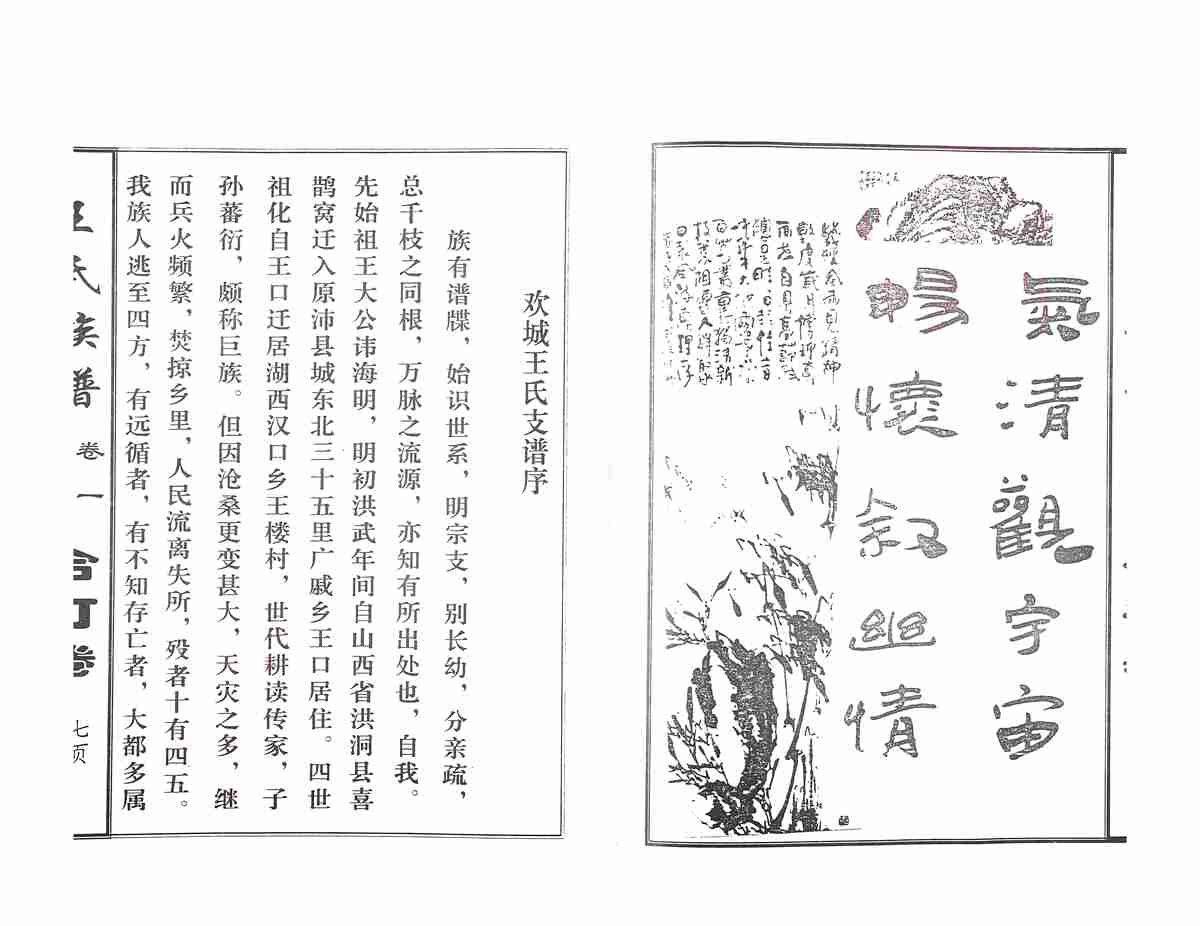 氣清觀宇宙
暢懷叙幽情
欢城王氏支谱序
族有谱牒，始识世系，明宗支，别长幼，分亲疏，
总千枝之同根，万脉之流源，亦知有所出处也，自我。
先始祖王大公讳海明，明初洪武年间自山西省洪洞县喜
鹊窝迁入原沛县城东北三十五里广戚乡王口居住。四世
祖化自王口迁居湖西汉口乡王楼村，世代耕读传家，子
孙蕃衍，颇称巨族。但因沧桑更变甚大，天灾之多，继
而兵火频繁，焚掠乡里，人民流离失所，殁者十有四五。
我族人逃至四方，有远循者，有不知存亡者，大都多属
王氏族谱 卷一 合订卷 七页